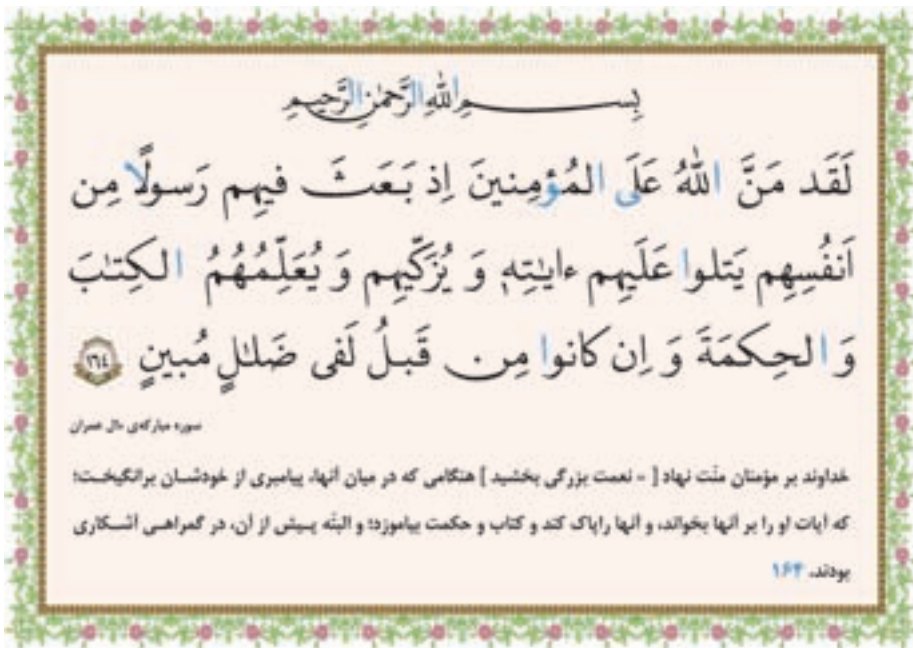 بِسمِ اللهِ الرَّحمٰنِ الرَّحیمِ
لَقَد مَنَّ اللهُ عَلَی المُؤمِنینَ اِذ بَعَثَ فیهِم رَسولًا مِن
اَنفُسِهِم یَتلوا عَلَیهِم ءایٰتِهٖ وَ یُزَکّیهِم وَ یُعَلِّمُهُمُ الکِتٰبَ
وَ الحِکمَةَ وَ اِن کانوا مِن قَبلُ لَفی ضَلٰلٍ مُبینٍ ١٦٤
سوره مبارکه‌ی ءال عمران
خداوند بر مؤمنان منّت نهاد [ - نعمت بزرگی بخشید ] هنگامی که در میان آنها، پیامبری از خودشان برانگیخت؛
که آیات او را بر آنها بخواند، و آنها را پاک کند و کتاب و حکمت بیاموزد؛ و البتّه پیش از آن، در گمراهی آشکاری
بودند. ۱۶۴